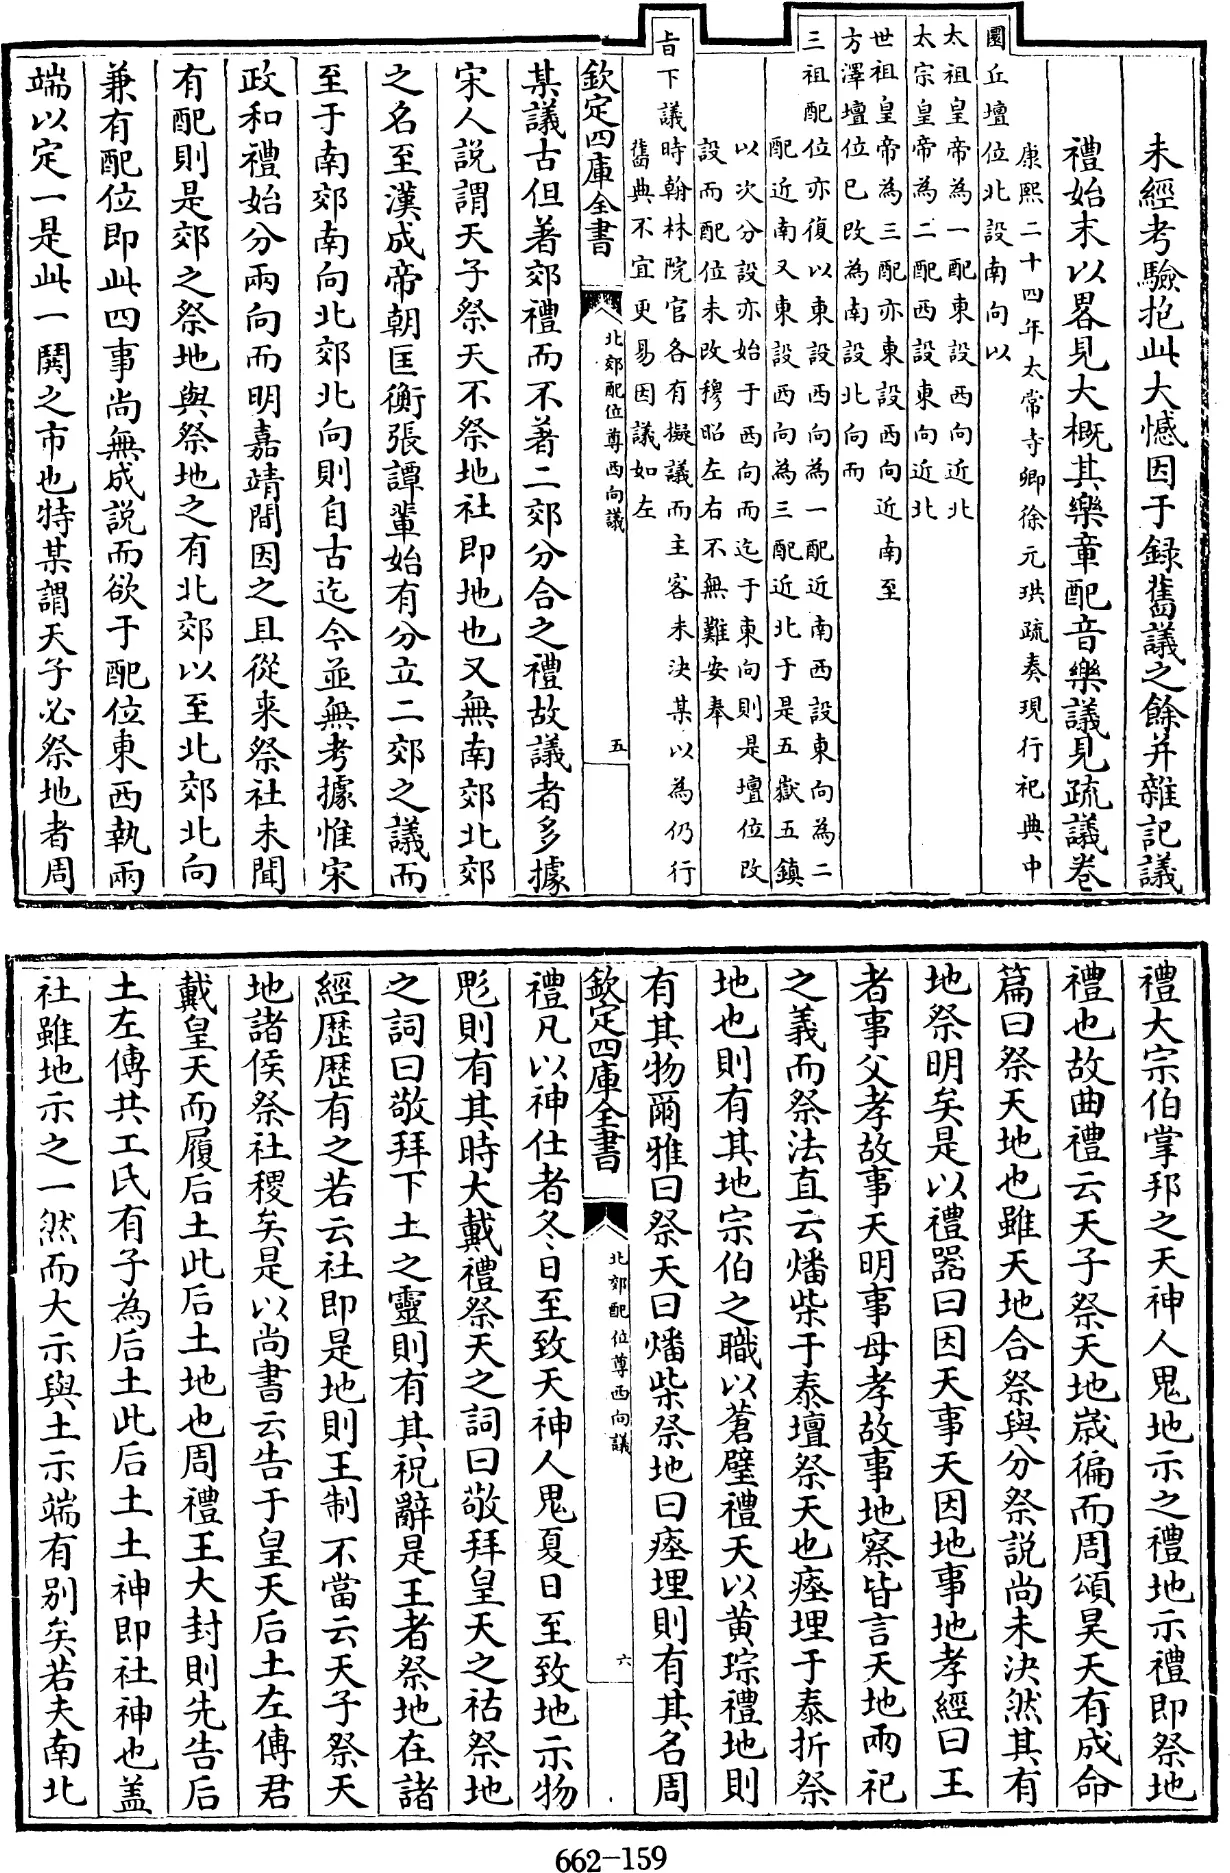 未經考驗抱此大憾因于録舊議之餘并雜記議
禮始末以畧見大概其樂章配音樂議見疏議卷
康熙二十四年太常寺卿徐元珙疏奏現行祀典中
圜丘壇位北設南向以
太祖皇帝為一配東設西向近北
太宗皇帝為二配西設東向近北
世祖皇帝為三配亦東設西向近南至
方澤壇位已改為南設北向而
三祖配位亦復以東設西向為一配近南西設東向為二
配近南又東設西向為三配近北于是五嶽五鎮
以次分設亦始于西向而迄于東向則是壇位改
設而配位未改穆昭左右不無難安奉
旨下議時翰林院官各有擬議而主客未決某以為仍行
舊典不宜更易因議如左
欽定四庫全書
北郊配位尊西向議
五
某議古但著郊禮而不著二郊分合之禮故議者多據
宋人説謂天子祭天不祭地社即地也又無南郊北郊
之名至漢成帝朝匡衡張譚輩始有分立二郊之議而
至于南郊南向北郊北向則自古迄今並無考據惟宋
政和禮始分兩向而明嘉靖間因之且從來祭社未聞
有配則是郊之祭地與祭地之有北郊以至北郊北向
兼有配位即此四事尚無成説而欲于配位東西執兩
端以定一是此一鬨之市也特某謂天子必祭地者周
禮大宗伯掌邦之天神人鬼地示之禮地示禮即祭地
禮也故曲禮云天子祭天地歳徧而周頌昊天有成命
篇曰祭天地也雖天地合祭與分祭説尚未決然其有
地祭明矣是以禮器曰因天事天因地事地孝經曰王
者事父孝故事天明事母孝故事地察皆言天地兩祀
之義而祭法直云燔柴于泰壇祭天也瘞埋于泰折祭
地也則有其地宗伯之職以蒼璧禮天以黄琮禮地則
有其物爾雅曰祭天曰燔柴祭地曰瘞埋則有其名周
欽定四庫全書
北郊配位尊西向議
六
禮凡以神仕者冬日至致天神人鬼夏日至致地示物
鬽則有其時大戴禮祭天之詞曰敬拜皇天之祜祭地
之詞曰敬拜下土之靈則有其祝辭是王者祭地在諸
經歴歴有之若云社即是地則王制不當云天子祭天
地諸侯祭社稷矣是以尚書云告于皇天后土左傳君
戴皇天而履后土此后土地也周禮王大封則先告后
土左傳共工氏有子為后土此后土土神即社神也盖
社雖地示之一然而大示與土示端有别矣若夫南北
662-159